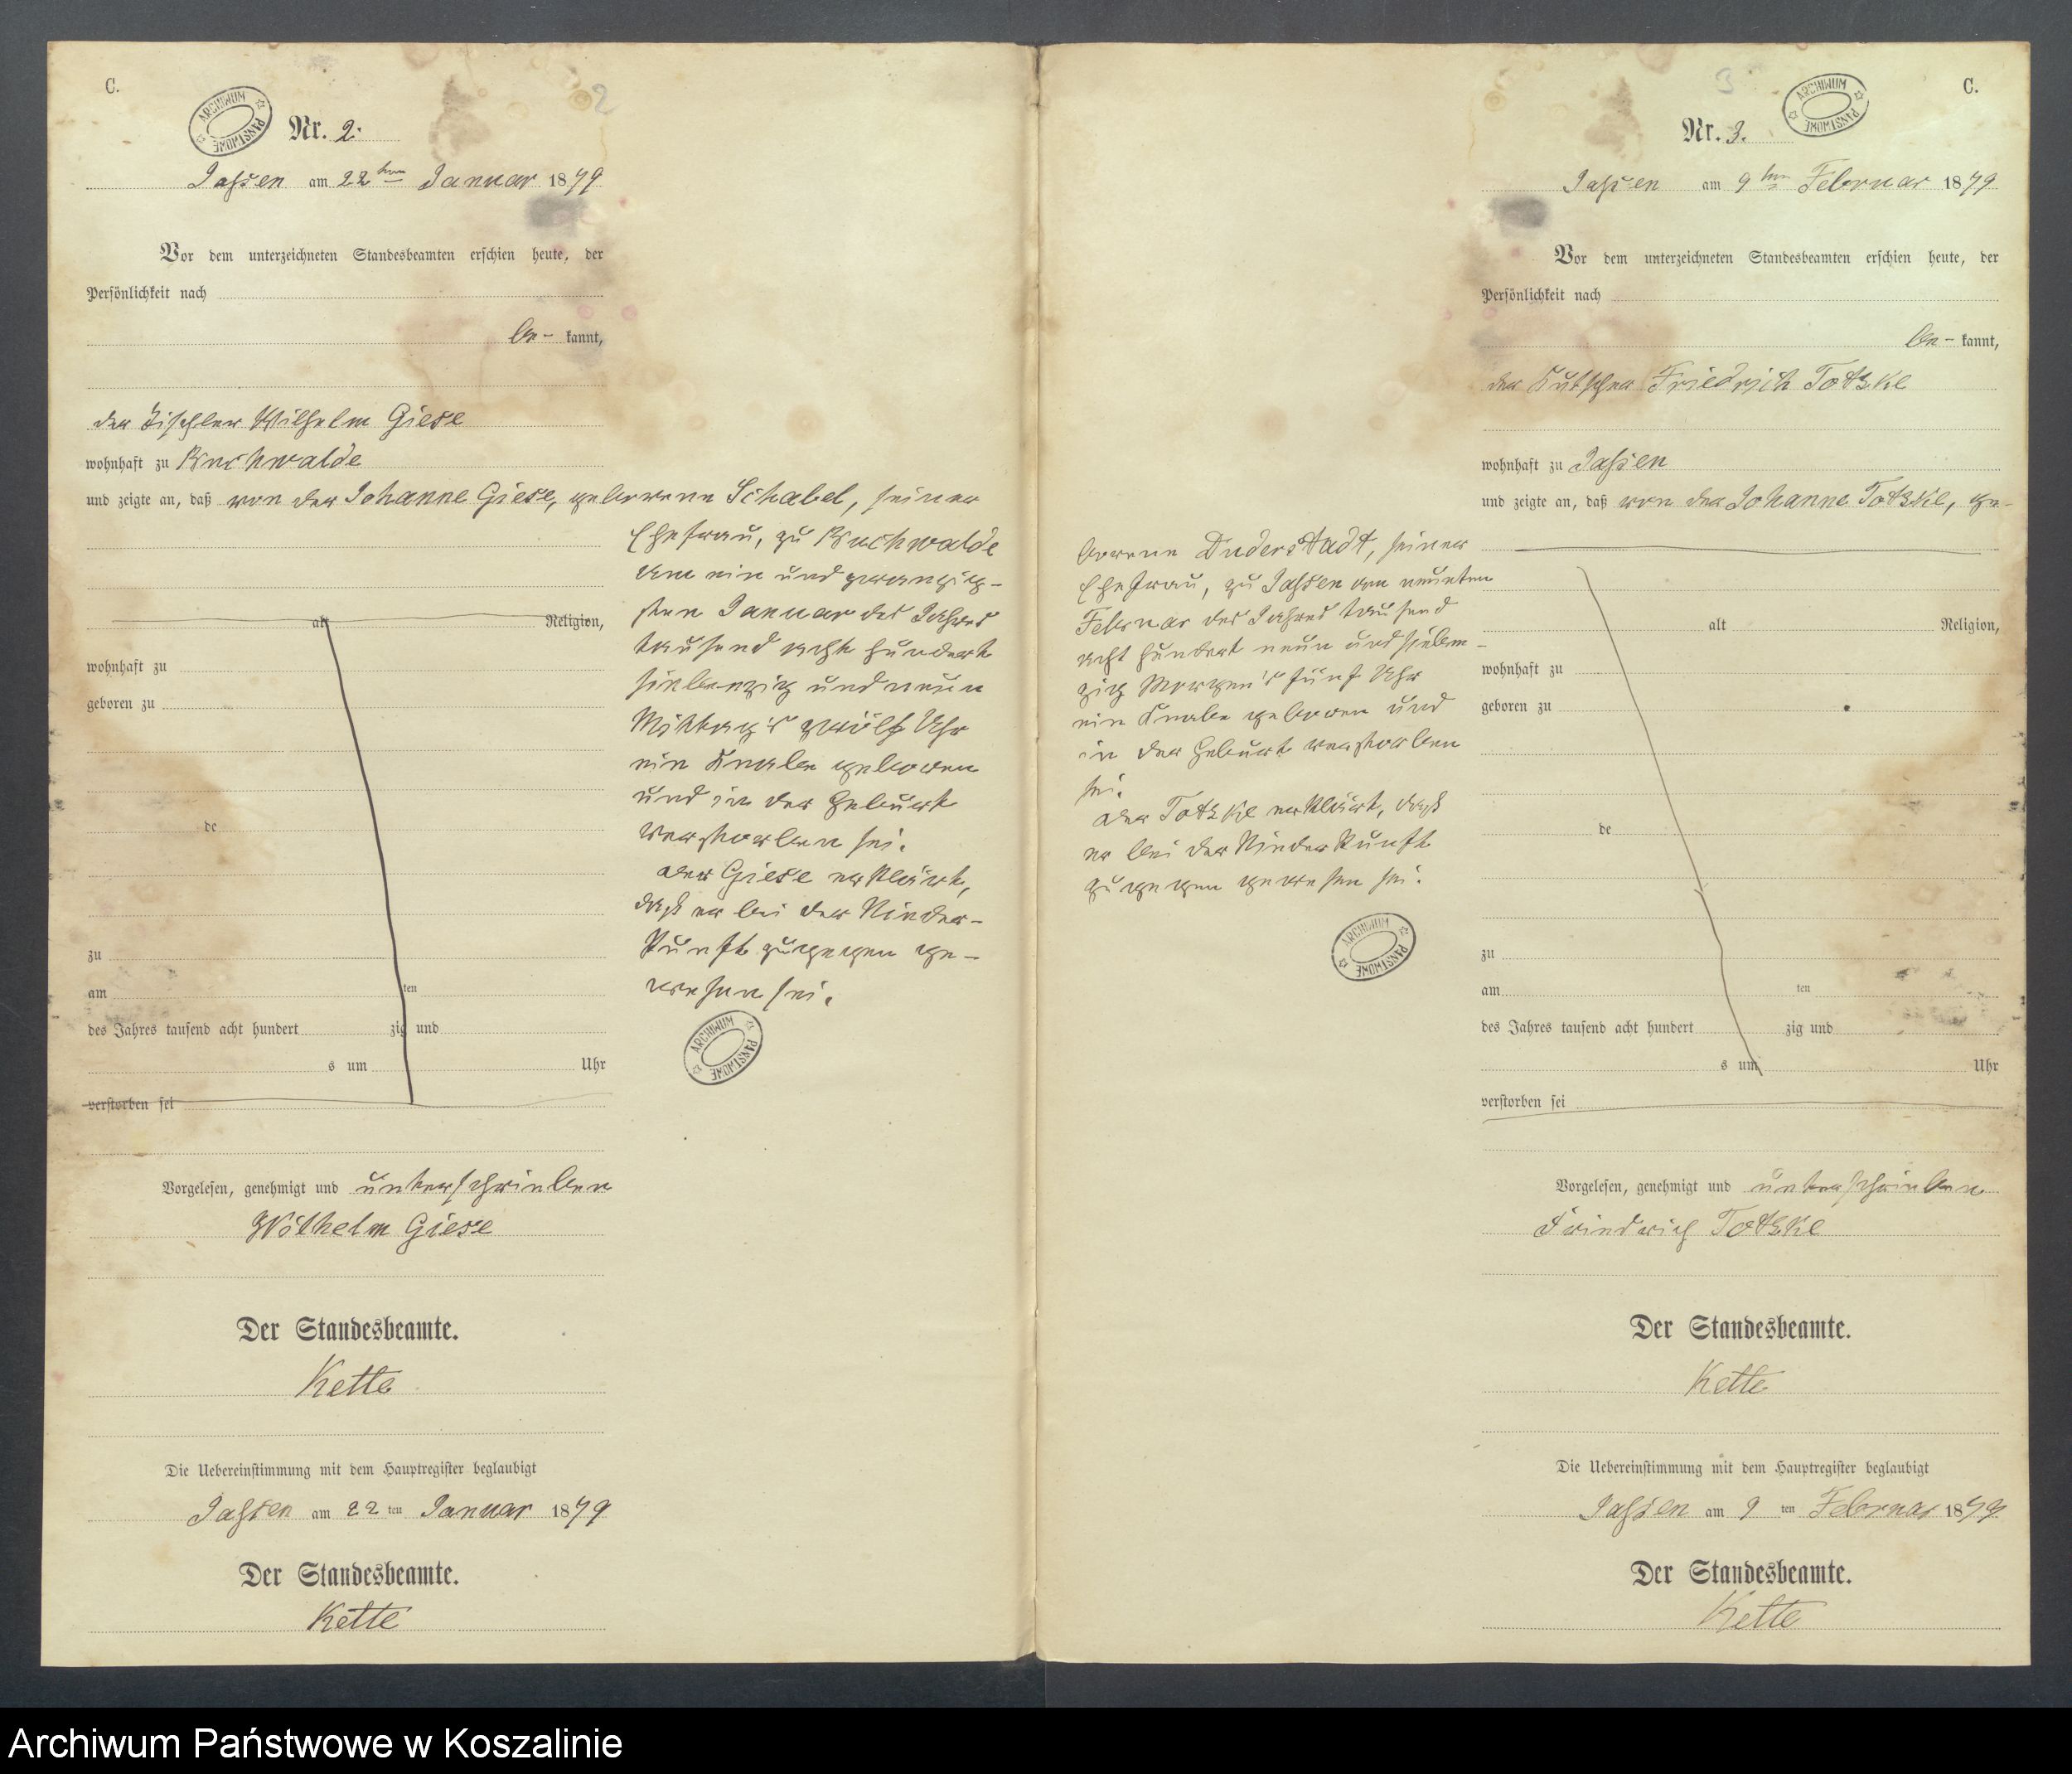 C.
ARCHIWUM PAŃSTWOWE
2
Nr. 2.
Jassen am 22ten Januar 1879
Vor dem unterzeichneten Standesbeamten erschien heute, der
Persönlichkeit nach
be- kannt,
der Tischler Wilhelm Giese
wohnhaft zu Buchwalde
und zeigte an, daß von der Johanne Giese, geborenen Schabel, seiner
Ehefrau, zu Buchwalde
am ein und zwanzig-
sten Januar des Jahres
tausend acht hundert
siebenzig und neun
Mittag's zwölf Uhr
ein Knabe geboren
und in der Geburt
verstorben sei.
der Giese erklärt,
daß er bei der Nieder-
kunft zugegen ge-
wesen sei.
ARCHIWUM PAŃSTWOWE
alt Religion,
wohnhaft zu
geboren zu
de
zu
am ten
des Jahres tausend acht hundert zig und
s um Uhr
verstorben sei
Vorgelesen, genehmigt und unterschrieben
Wilhelm Giese
Der Standesbeamte.
Kette
Die Uebereinstimmung mit dem Hauptregister beglaubigt
Jassen am 22 ten Januar 1879
Der Standesbeamte.
Kette
3
C.
ARCHIWUM PAŃSTWOWE
Nr. 3.
Jassen am 9ten Februar 1879
Vor dem unterzeichneten Standesbeamten erschien heute, der
Persönlichkeit nach
be- kannt,
der Kutscher Friedrich Totzke
wohnhaft zu Jassen
und zeigte an, daß von der Johanne Totzke, ge-
borene Duderstadt, seiner
Ehefrau, zu Jassen am neunten
Februar des Jahres tausend
acht hundert neun und sieben-
zig Morgen's fünf Uhr
ein Knabe geboren und
in der Geburt verstorben
sei.
der Totzke erklärt, daß
er bei der Niederkunft
zugegen gewesen sei.
ARCHIWUM PAŃSTWOWE
alt Religion,
wohnhaft zu
geboren zu
de
zu
am ten
des Jahres tausend acht hundert zig und
s um Uhr
verstorben sei
Vorgelesen, genehmigt und unterschrieben
Friedrich Totzke
Der Standesbeamte.
Kette
Die Uebereinstimmung mit dem Hauptregister beglaubigt
Jassen am 9 ten Februar 1879
Der Standesbeamte.
Kette
Archiwum Państwowe w Koszalinie